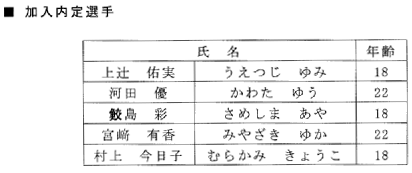 ■ 加入内定選手
氏 名 年齢
上辻 佑実 うえつじ ゆみ 18
河田 優 かわた ゆう 22
鮫島 彩 さめしま あや 18
宮﨑 有香 みやざき ゆか 22
村上 今日子 むらかみ きょうこ 18